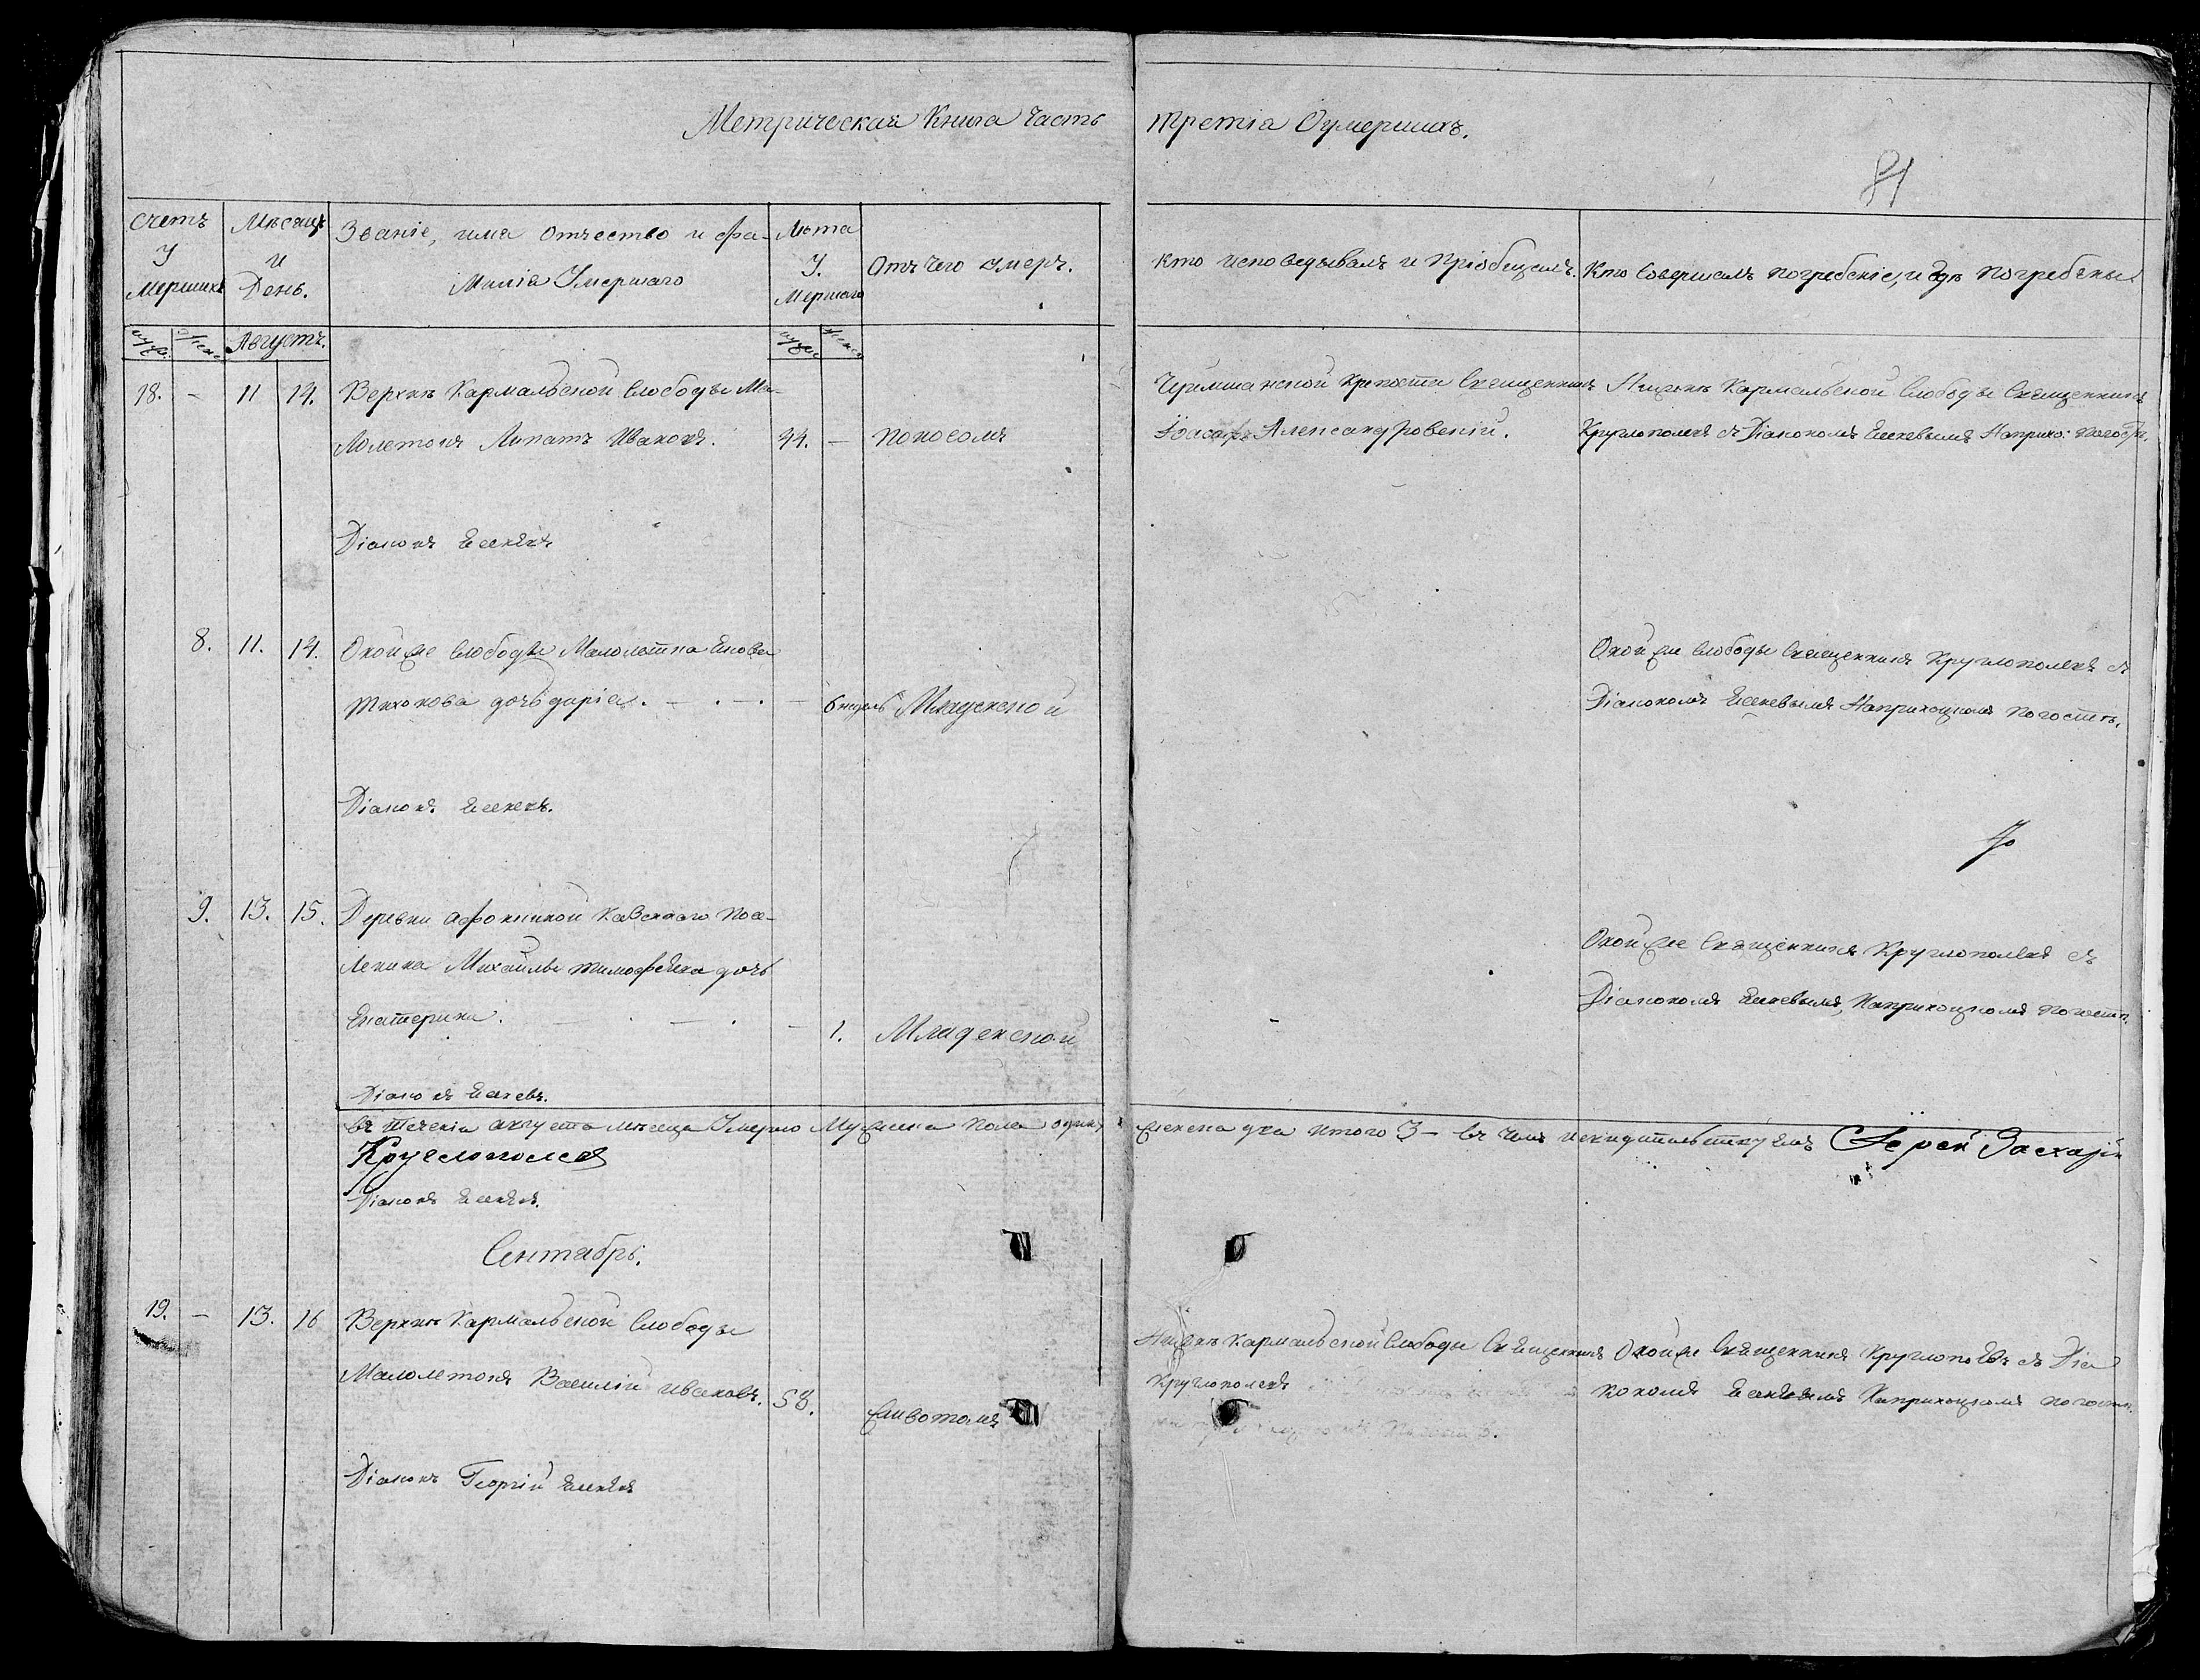 Метрическая Книга Часть третіа Оумершихъ.
81
Счетъ У Мершихъ
Мѣсяцъ и День.
Званіе, имя отчество и Фа-
Миліа Умершаго
Лѣта У. Мершаго
Отъ Чего Умеръ.
Кто исповедывалъ и Пріобщалъ.
Кто Совершалъ погребеніе, и гдѣ погребены
муж. женс
Августъ.
муж женс
18. - 11 14. Верхнѣ Кармальской Слободы Ма-
лолетокъ Липатъ Ивановъ. 44. - Поносомъ
Черемшанской Крепости Священникъ
Іоасафъ Александровскій.
Нижнѣ Кармальской Слободы Священникъ
Круглополевъ съ Діакономъ Евсевьемъ Наприхо: погостѣ.
Діаконъ Евсевъ
8. 11. 14. Оной же Слободы Малолѣтка Якова
Тихонова дочь дарія. - . - . - 6 недель Младенской
Оной же Слободы Священникъ Круглополевъ съ
Діакономъ Евсевымъ Наприходскомъ погостѣ.
Діаконъ Евсевъ.
9. 13. 15. Деревни Афонкиной Казеннаго Посе-
ленина Михайлы Тимофѣева дочь
Екатерина. - . - . - 1. Младенской
Оной же Священникъ Круглополевъ съ
Діакономъ Евсевымъ, Наприходскомъ погостѣ.
Діаконъ Евсевъ.
въ теченіи августа мѣсеца Умерло Мужеска пола одинъ женска два итого 3 - въ чемъ и свидѣтельствуемъ Іерей Захарій
Круглополевъ
Діаконъ Евсевъ.
Сентябрь.
19. - 13. 16 Верхнѣ Кармальской Слободы
Малолетокъ Василій Ивановъ. 58. Животомъ
Нижнѣ Кармальской Слободы Священникъ
Круглополевъ
Оной же Священникъ Круглополевъ съ Діа
кономъ Евсевымъ Наприходскомъ погостѣ.
Діаконъ Георгій Евсевъ